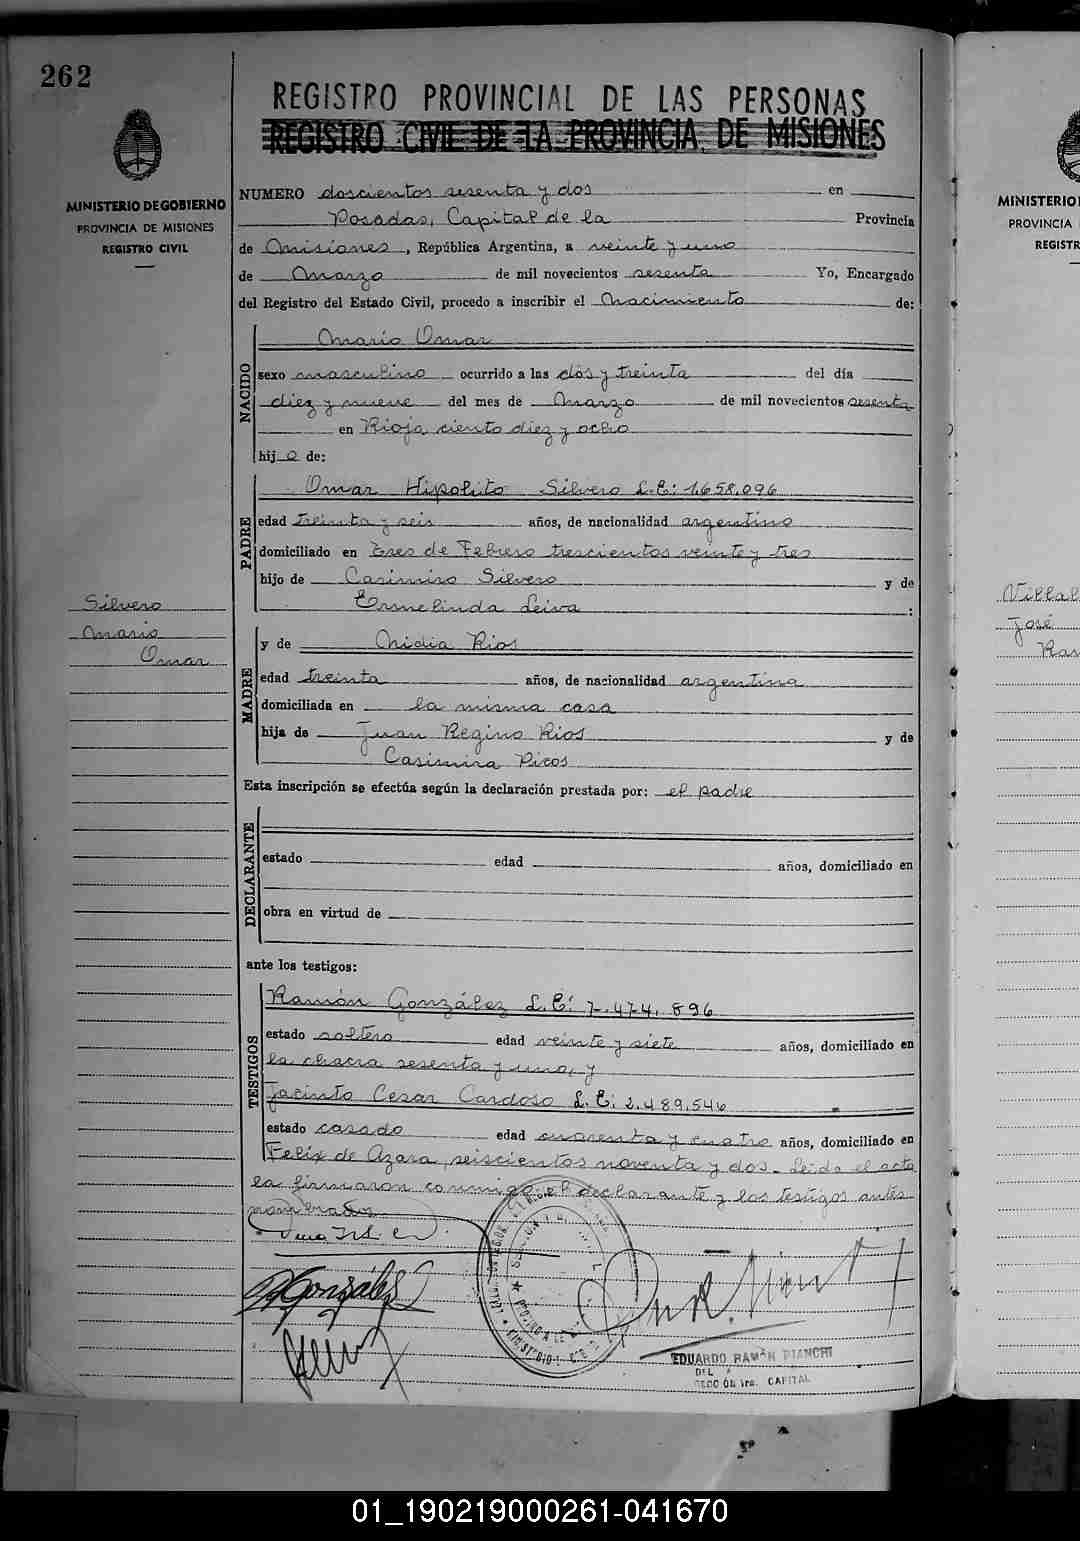 262
REGISTRO PROVINCIAL DE LAS PERSONAS
REGISTRO CIVIL DE LA PROVINCIA DE MISIONES
MINISTERIO DE GOBIERNO
PROVINCIA DE MISIONES
REGISTRO CIVIL
NUMERO doscientos sesenta y dos en
Posadas, Capital de la Provincia
de Misiones, República Argentina, a veinte y uno
de Marzo de mil novecientos sesenta Yo, Encargado
del Registro del Estado Civil, procedo a inscribir el Nacimiento de:
NACIDO
Mario Omar
sexo masculino ocurrido a las dos y treinta del día
diez y nueve del mes de Marzo de mil novecientos sesenta
en Rioja ciento diez y ocho
hijo de:
PADRE
Omar Hipolito Silvero L.E: 1.658.096
edad treinta y seis años, de nacionalidad argentino
domiciliado en Tres de Febrero trescientos veinte y tres
hijo de Casimiro Silvero y de
Ermelinda Leiva :
Silvero
Mario
Omar
MADRE
y de Nidia Rios
edad treinta años, de nacionalidad argentina
domiciliada en la misma casa
hija de Juan Regino Rios y de
Casimira Picos
Esta inscripción se efectúa según la declaración prestada por: el padre
DECLARANTE
estado edad años, domiciliado en
obra en virtud de
ante los testigos:
TESTIGOS
Ramón González L.E: 7.474.896
estado soltero edad veinte y siete años, domiciliado en
la chacra sesenta y una, y
Jacinto Cesar Cardoso L.E: 2.489.546
estado casado edad cuarenta y cuatro años, domiciliado en
Felix de Azara, seiscientos noventa y dos.- Leida el acta
la firmaron conmigo el declarante y los testigos antes
nombrados
González
EDUARDO RAMÓN BIANCHI
DEL
SECCIÓN 1ra. CAPITAL
MINISTERIO
PROVINCIA
REGISTR
Villal
José
Ram
01_190219000261-041670